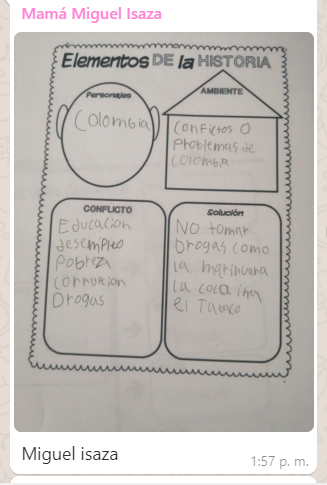 Mamá Miguel Isaza
Elementos DE la HISTORIA
Personajes
Colombia
AMBIENTE
Conflictos o
Problemas de
Colombia
CONFLICTO
Educacion
desempleo
Pobreza
Corrupcion
Drogas
Solución
No tomar
Drogas como
la marihuana
La cocaina
el Tabaco
Miguel isaza
1:57 p. m.